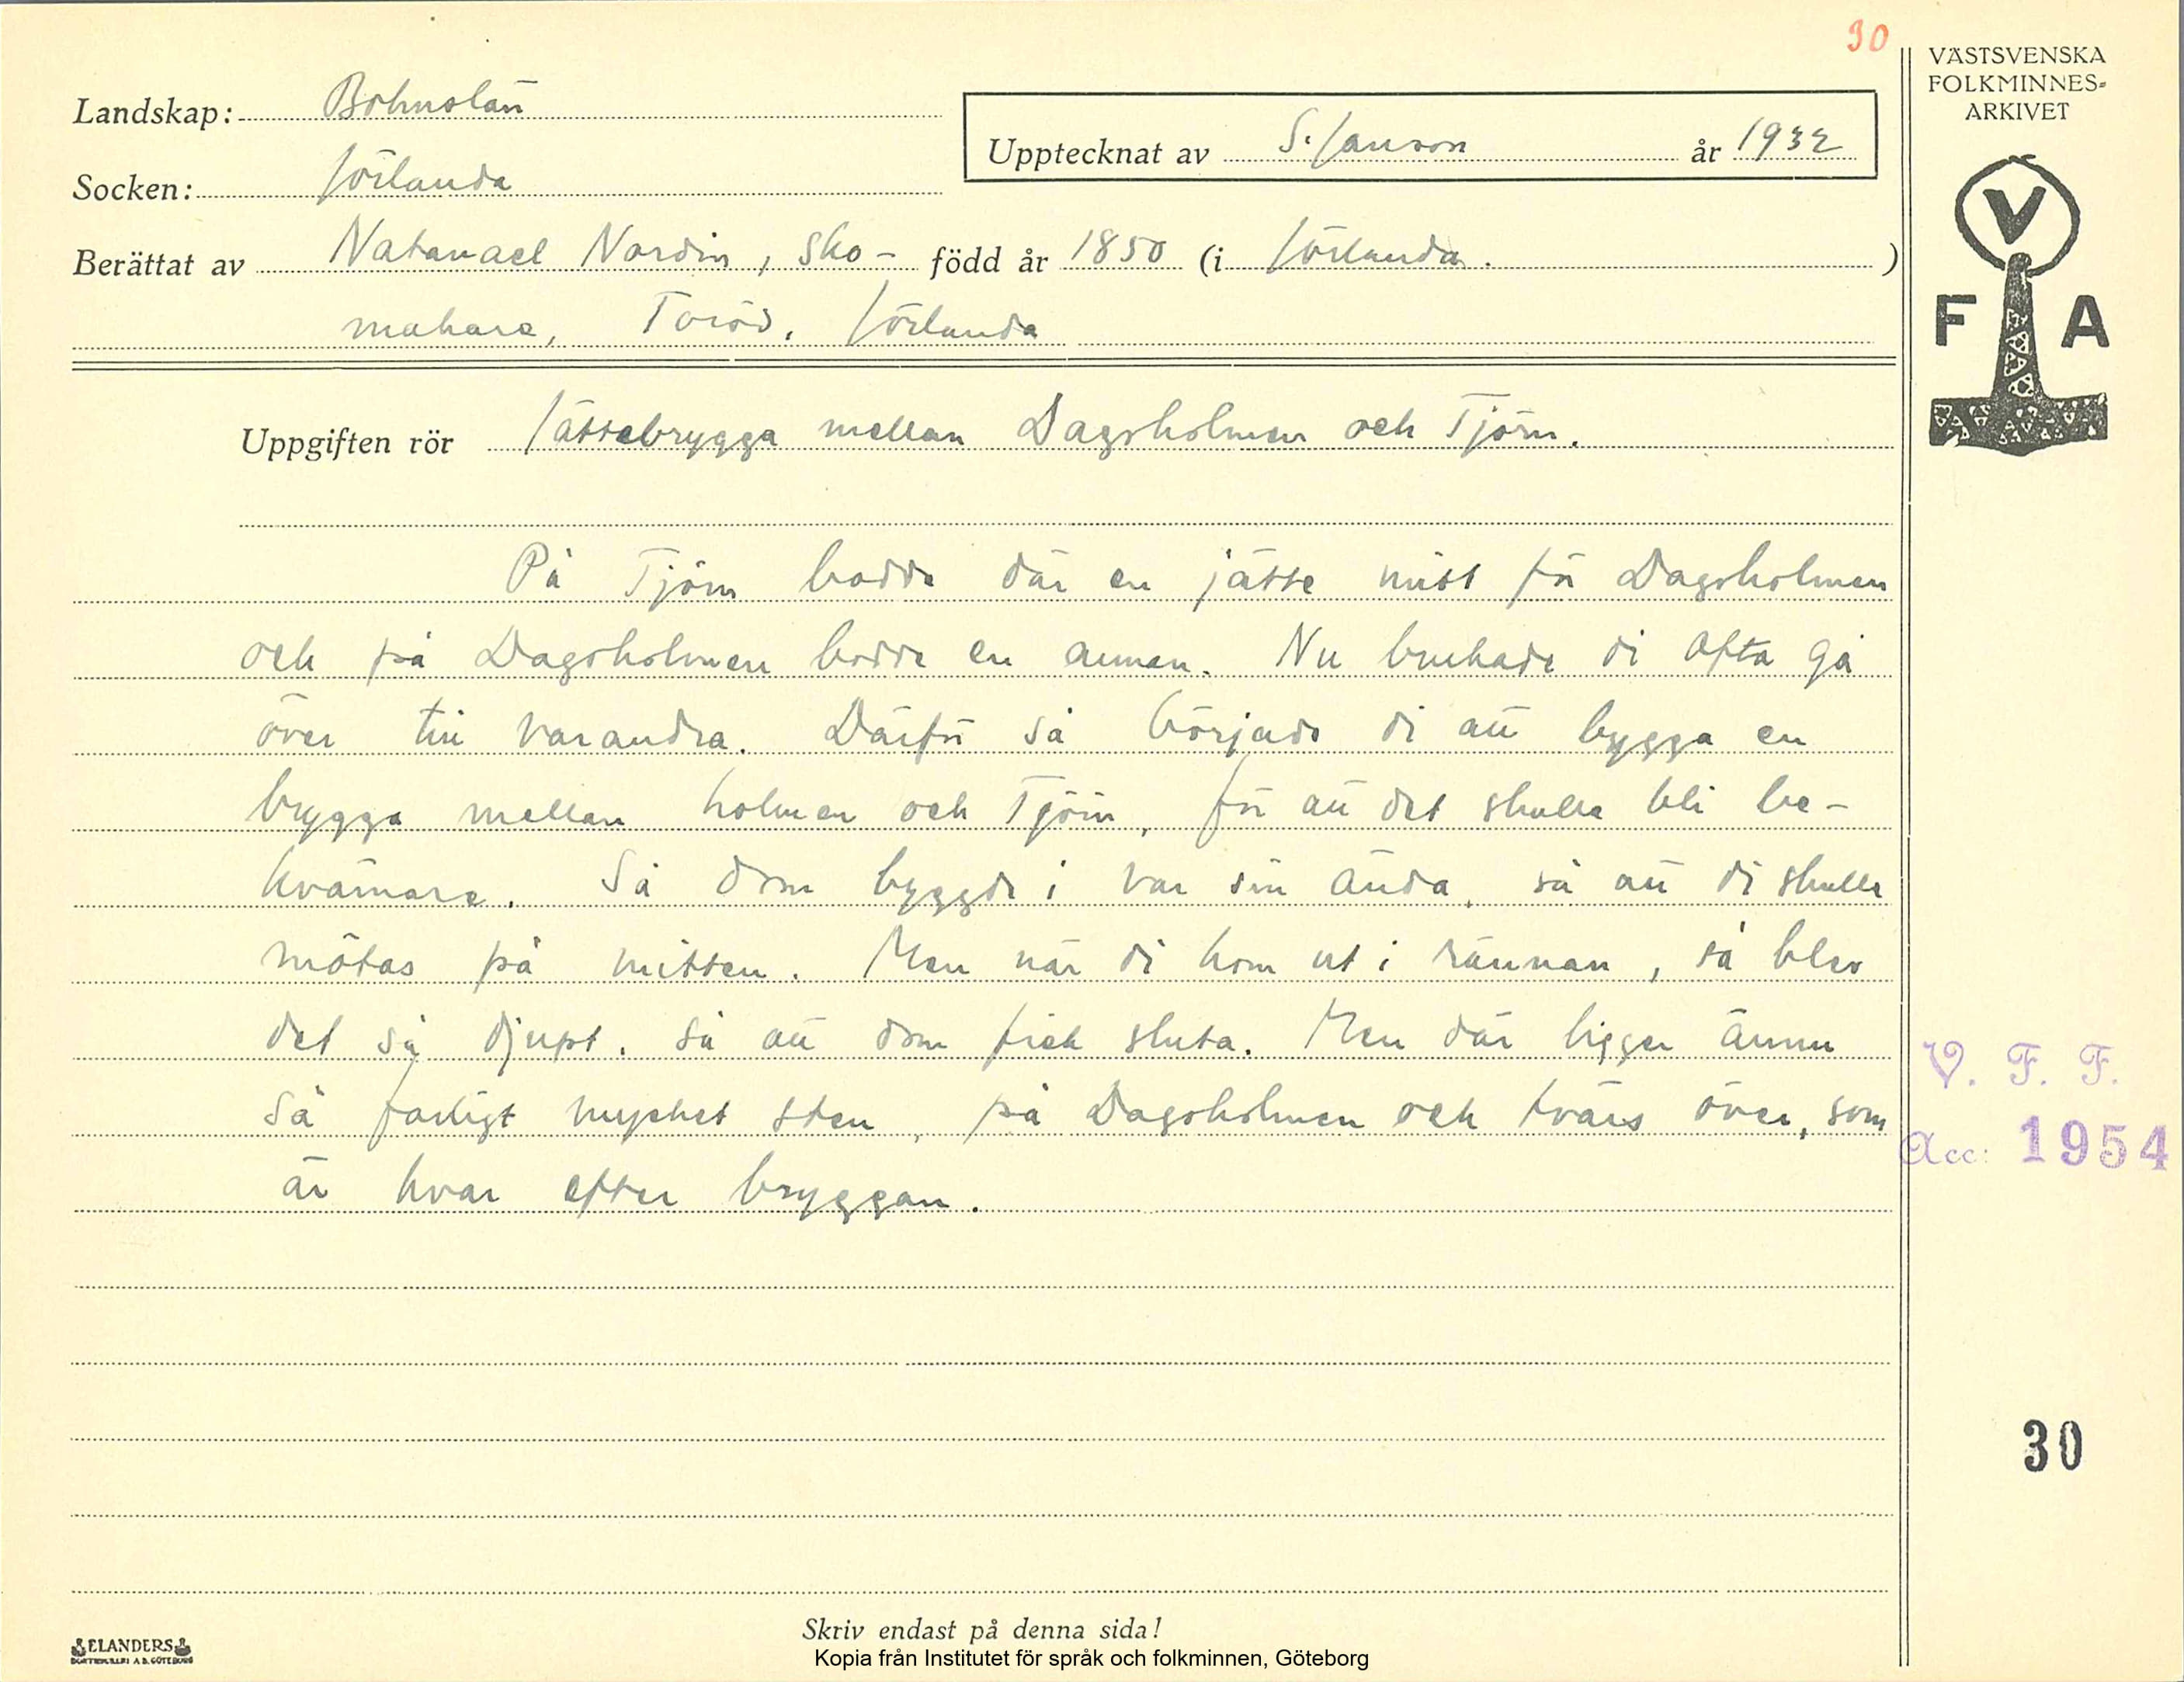 30
VÄSTSVENSKA
FOLKMINNES-
ARKIVET
Landskap: Bohuslän
Upptecknat av S. Janson år 1932
Socken: Jörlanda
Berättat av Natanael Nordin, sko- född år 1850 (i Jörlanda.)
makare, Toröd, Jörlanda
V
F A
Uppgiften rör Jättebrygga mellan Dagsholmen och Tjörn.
På Tjörn bodde där en jätte mitt för Dagsholmen
och på Dagsholmen bodde en annan. Nu brukade di ofta gå
över till varandra. Därför så började di att bygga en
brygga mellan holmen och Tjörn, för att det skulle bli be-
kvämare. Så dom byggde i var sin ända, så att di skulle
mötas på mitten. Men när di kom ut i rännan, så blev
det så djupt, så att dom fick sluta. Men där ligger ännu
så farligt mycket sten, på Dagsholmen och tvärs över, som
är kvar efter bryggan.
V. F. F.
Acc: 1954
30
Skriv endast på denna sida!
ELANDERS
Kopia från Institutet för språk och folkminnen, Göteborg